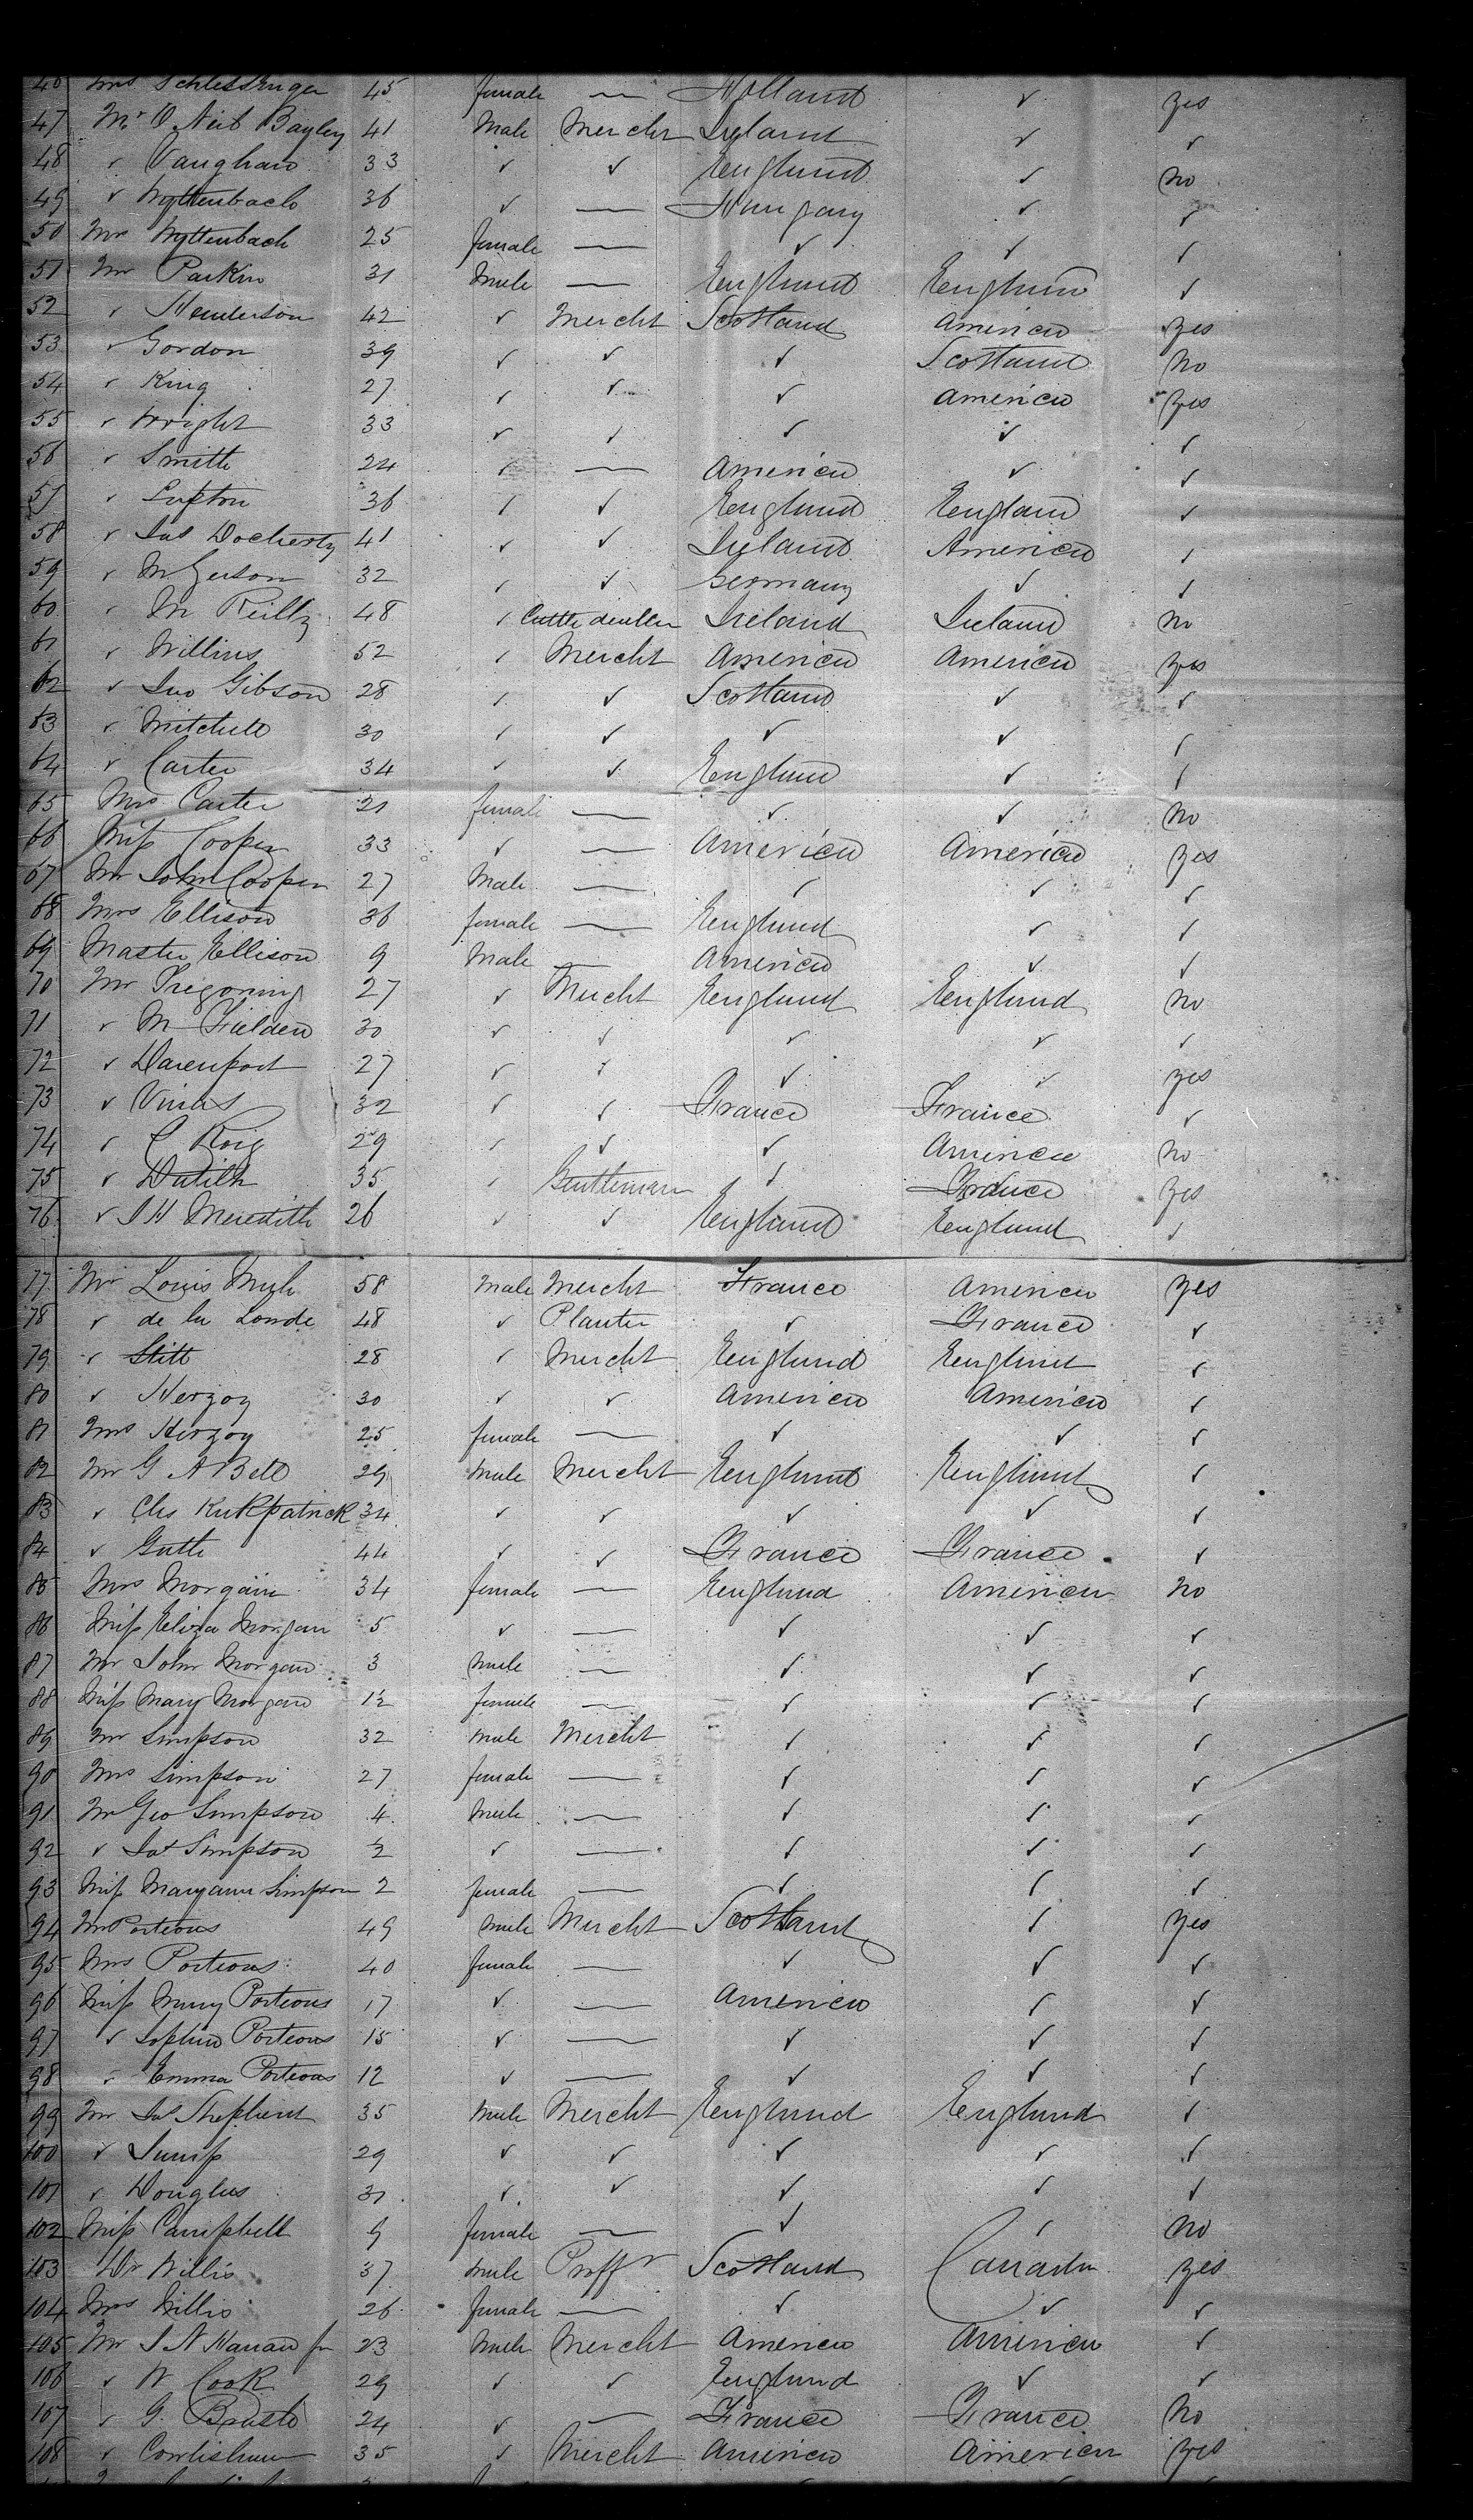 46 Mrs Schlessinger 45 female — Holland ✓ yes
47 Mr O Neil Bayley 41 Male Mercht Ireland ✓ ✓
48 ✓ Vaughan 33 ✓ ✓ England ✓ no
49 ✓ Wyttenbach 36 ✓ — Hungary ✓ ✓
50 Mrs Wyttenbach 25 female — ✓ ✓ ✓
51 Mr Parkin 31 Male — England England ✓
52 ✓ Henderson 42 ✓ Mercht Scotland America yes
53 ✓ Gordon 39 ✓ ✓ ✓ Scotland No
54 ✓ King 27 ✓ ✓ ✓ America yes
55 ✓ Wright 33 ✓ ✓ ✓ ✓ ✓
56 ✓ Smith 24 ✓ — America ✓ ✓
57 ✓ Lupton 36 ✓ ✓ England England ✓
58 ✓ Jas Docherty 41 ✓ ✓ Ireland America ✓
59 ✓ M Gerson 32 ✓ ✓ Germany ✓ ✓
60 ✓ M Reilly 48 ✓ Cattle dealer Ireland Ireland no
61 ✓ Willins 52 ✓ Mercht America America yes
62 ✓ Jno Gibson 28 ✓ ✓ Scotland ✓ ✓
63 ✓ Mitchell 30 ✓ ✓ ✓ ✓ ✓
64 ✓ Carter 34 ✓ ✓ England ✓ ✓
65 Mrs Carter 21 female — ✓ ✓ no
66 Miss Cooper 33 ✓ — America America yes
67 Mr John Cooper 27 Male — ✓ ✓ ✓
68 Mrs Ellison 36 female — England ✓ ✓
69 Master Ellison 9 Male — America ✓ ✓
70 Mr 27 ✓ Mercht England England no
71 ✓ M Fielden 30 ✓ ✓ ✓ ✓ ✓
72 ✓ Davenport 27 ✓ ✓ ✓ ✓ yes
73 ✓ Vinas 32 ✓ ✓ France France ✓
74 ✓ Roig 29 ✓ ✓ ✓ America no
75 ✓ Dutilh 35 ✓ Gentleman ✓ France yes
76 ✓ J H Meredith 26 ✓ ✓ England England ✓
77 Mr Louis 58 Male Mercht France America yes
78 ✓ de la Londe 48 ✓ Planter ✓ France ✓
79 ✓ Stitt 28 ✓ Mercht England England ✓
80 ✓ Herzog 30 ✓ ✓ America America ✓
81 Mrs Herzog 25 female — ✓ ✓ ✓
82 Mr G A Bell 29 Male Mercht England England ✓
83 ✓ Chs Kirkpatrick 34 ✓ ✓ ✓ ✓ ✓
84 ✓ 44 ✓ ✓ France France ✓
85 Mrs Morgain 34 female — England America No
86 Miss Eliza Morgan 5 ✓ — ✓ ✓ ✓
87 Mr John Morgan 3 Male — ✓ ✓ ✓
88 Miss Mary Morgan 1½ female — ✓ ✓ ✓
89 Mr Simpson 32 Male Mercht ✓ ✓ ✓
90 Mrs Simpson 27 female — ✓ ✓ ✓
91 Mr Geo Simpson 4 Male — ✓ ✓ ✓
92 ✓ Jas Simpson ½ ✓ — ✓ ✓ ✓
93 Miss Maryann Simpson 2 female — ✓ ✓ ✓
94 Mr Porteous 49 Male Mercht Scotland ✓ yes
95 Mrs Porteous 40 female — ✓ ✓ ✓
96 Miss Mary Porteous 17 ✓ — America ✓ ✓
97 ✓ Sophia Porteous 15 ✓ — ✓ ✓ ✓
98 ✓ Emma Porteous 12 ✓ — ✓ ✓ ✓
99 Mr Jas Shepherd 35 Male Mercht England England ✓
100 ✓ 29 ✓ ✓ ✓ ✓ ✓
101 ✓ Douglas 31 ✓ ✓ ✓ ✓ ✓
102 Miss Campbell 9 female — ✓ ✓ no
103 Dr Willis 37 Male Proffr Scotland Canada yes
104 Mrs Willis 26 female — ✓ ✓ ✓
105 Mr J N Hanau jr 23 Male Mercht America America ✓
106 ✓ W Cook 29 ✓ ✓ England ✓ ✓
107 ✓ G. 24 ✓ — France France No
108 ✓ Cowlishaw 35 ✓ Mercht America America yes